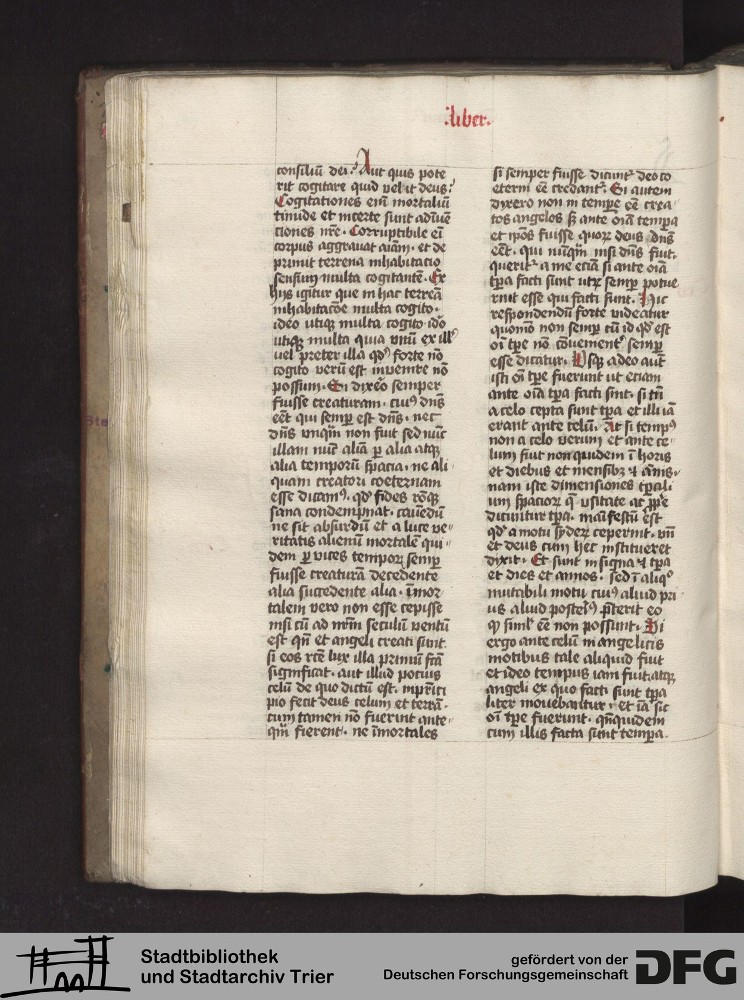 :liber.
consiliū dei? Aut quis pote
rit cogitare quid velit deus?
Cogitationes enī mortaliū
timide et incerte sunt adīuē
ciones nr̄e. Corruptibile eī
corpus aggravat aīam. et de
primit terrena inhabitacio
sensum multa cogitantē. Ex
hijs igitur que in hac terrea
inhabitacōe multa cogito.
ideo utiqꝫ multa cogito ido
utiqꝫ multa quia vnū ex ill
vel preter illa qd forte nō
cogito verū est invenire nō
possum. Si dixero semper
fuisse creaturam. cuiꝰ dn̄s
eēt qui semp̱ est dn̄s. nec
dn̄s vnqm̄ non fuit sed nūc
illam nūc aliā ꝑ alia atqꝫ
alia temporū spacia. ne ali
quam creatori coeternam
esse dicamꝰ. qd fides rōqꝫ
sana condempnat. cauedū
ne sit absurdū et a luce ve
ritatis alienū mortalē qui
dem ꝑ vices temporꝝ semp̱
fuisse creaturā decedente
alia succedente alia. īmor
talem vero non esse cepisse
nisi cū ad nr̄m seculū ventū
est qn̄ et angeli creati sunt.
si eos rc̄e lux illa primū fc̄a
significat. aut illud pocius
celū de quo dictū est. in pr̄ici
pio fecit deus celum et terrā.
cum tamen nō fuerint ante
qm̄ fierent. ne īmortales
si semper fuisse dicunt deo co
eterni eē credant. Si autem
dixero non in tempe eē crea
tos angelos sꝫ ante oīa tempa
et ip̄os fuisse quorꝝ deus dn̄s
eēt. qui nūqm̄ nisi dn̄s fuit.
querit a me eciā si ante oīa
tp̄a facti sunt utꝝ semp̱ potue
runt esse qui facti sunt. Hic
respondendū forte videatur
quomō non semp̱ cū id qd est
oī tp̄e nō cōuenient semp̱
esse dicatur. Vsqꝫ adeo aut̄
isti oī tp̄e fuerunt ut eciam
ante oīa tp̄a facti sint. si tn̄
a celo cepta sunt tp̄a et illi iā
erant ante celū. At si tempꝰ
non a celo verum et ante ce
lum fuit non quidem ī horis
et diebus et mensibꝫ et annis.
nam iste dimensiones tp̄rali
um spaciorꝝ q̄ vsitate ac ꝓprie
dicuntur tp̄a. maīfestū est
qd a motu syderꝝ ceperint. vn̄
et deus cum hec institueret
dixit. Et sunt in signa et tp̄a
et dies et annos. sed ī aliqꝰ
mutabili motu cuiꝰ aliud pri
us aliud posteriꝰ p̄terit eo
qꝫ siml eē non possunt. Si
ergo ante celū in angelicis
motibus tale aliquid fuit
et ideo tempus iam fuit. atqꝫ
angeli ex quo facti sunt tp̄a
liter mouebantur. et iā sic
oī tp̄e fuerunt. qn̄quidem
cum illis facta sunt tempa.
Stadtbibliothek
und Stadtarchiv Trier
gefördert von der
Deutschen Forschungsgemeinschaft
DFG